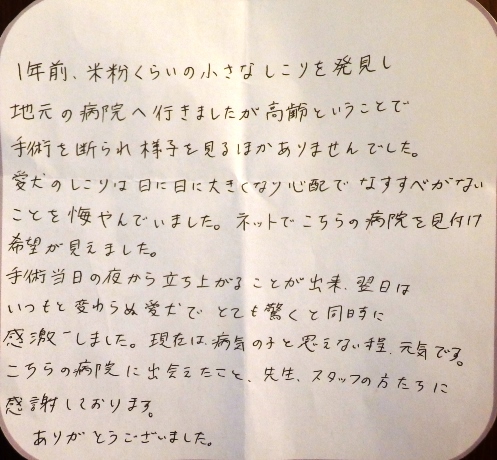 1年前、米粉くらいの小さなしこりを発見し
地元の病院へ行きましたが高齢ということで
手術を断られ様子を見るほかありませんでした。
愛犬のしこりは日に日に大きくなり心配でなすすべがない
ことを悔やんでいました。ネットでこちらの病院を見付け
希望が見えました。
手術当日の夜から立ち上がることが出来、翌日は
いつもと変わらぬ愛犬でとても驚くと同時に
感激しました。現在は、病気の子と思えない程、元気です。
こちらの病院に出会えたこと、先生、スタッフの方たちに
感謝しております。
ありがとうございました。